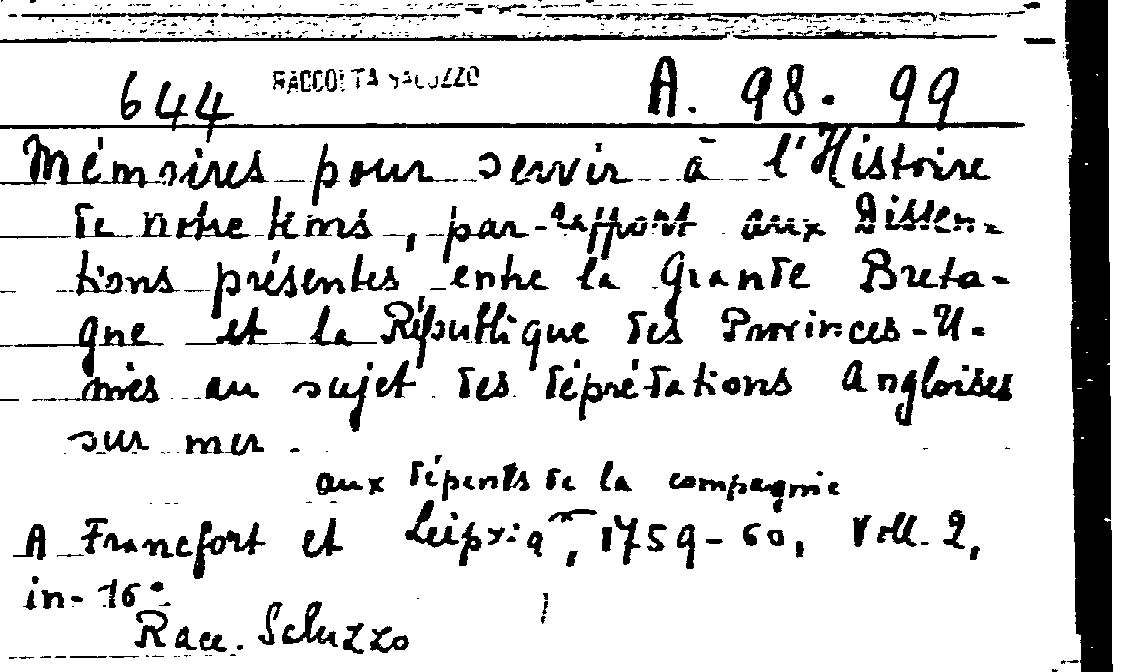 644 RACCOLTA SALUZZO A. 98. 99
Mémoires pour servir à l'Histoire
de notre tems, par-rapport aux Dissen-
tions présentes entre la Grande Breta-
gne et la République des Provinces-U-
nies au sujet des déprédations Angloises
sur mer.
aux dépents de la compagnie
A Francfort et Leipzig, 1759-60, Voll. 2,
in-16°.
Racc. Saluzzo